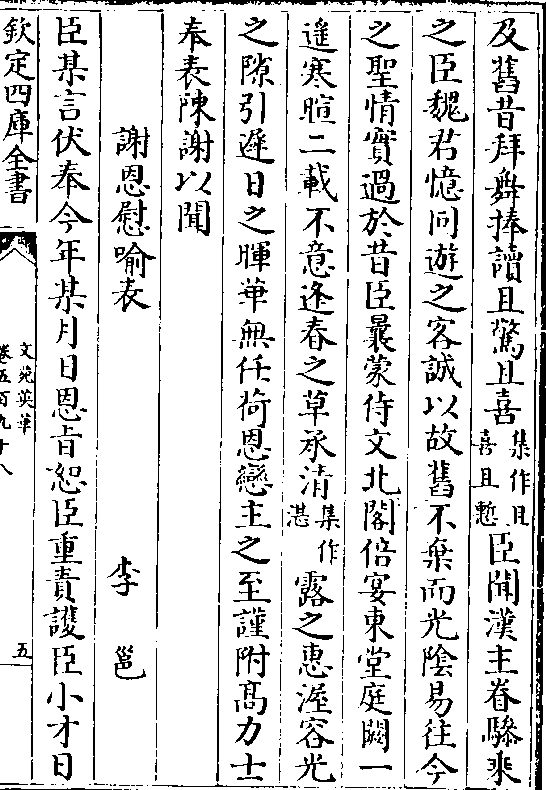 及舊昔拜舞捧讀且驚且喜集作且喜且慙臣聞漢主眷驂乗
之臣魏君憶同遊之客誠以故舊不棄而光陰易往今
之聖情實過於昔臣曩蒙侍文北閣倍宴東堂庭闕一
遥寒暄二載不意逢春之草承清集作湛露之惠渥容光
之隙引遲日之暉華無任荷恩戀主之至謹附髙力士
奉表陳謝以聞
謝恩慰喻表 李邕
臣某言伏奉今年某月日恩旨恕臣重責䕶臣小才日
欽定四庫全書
文苑英華
卷五百九十八
五